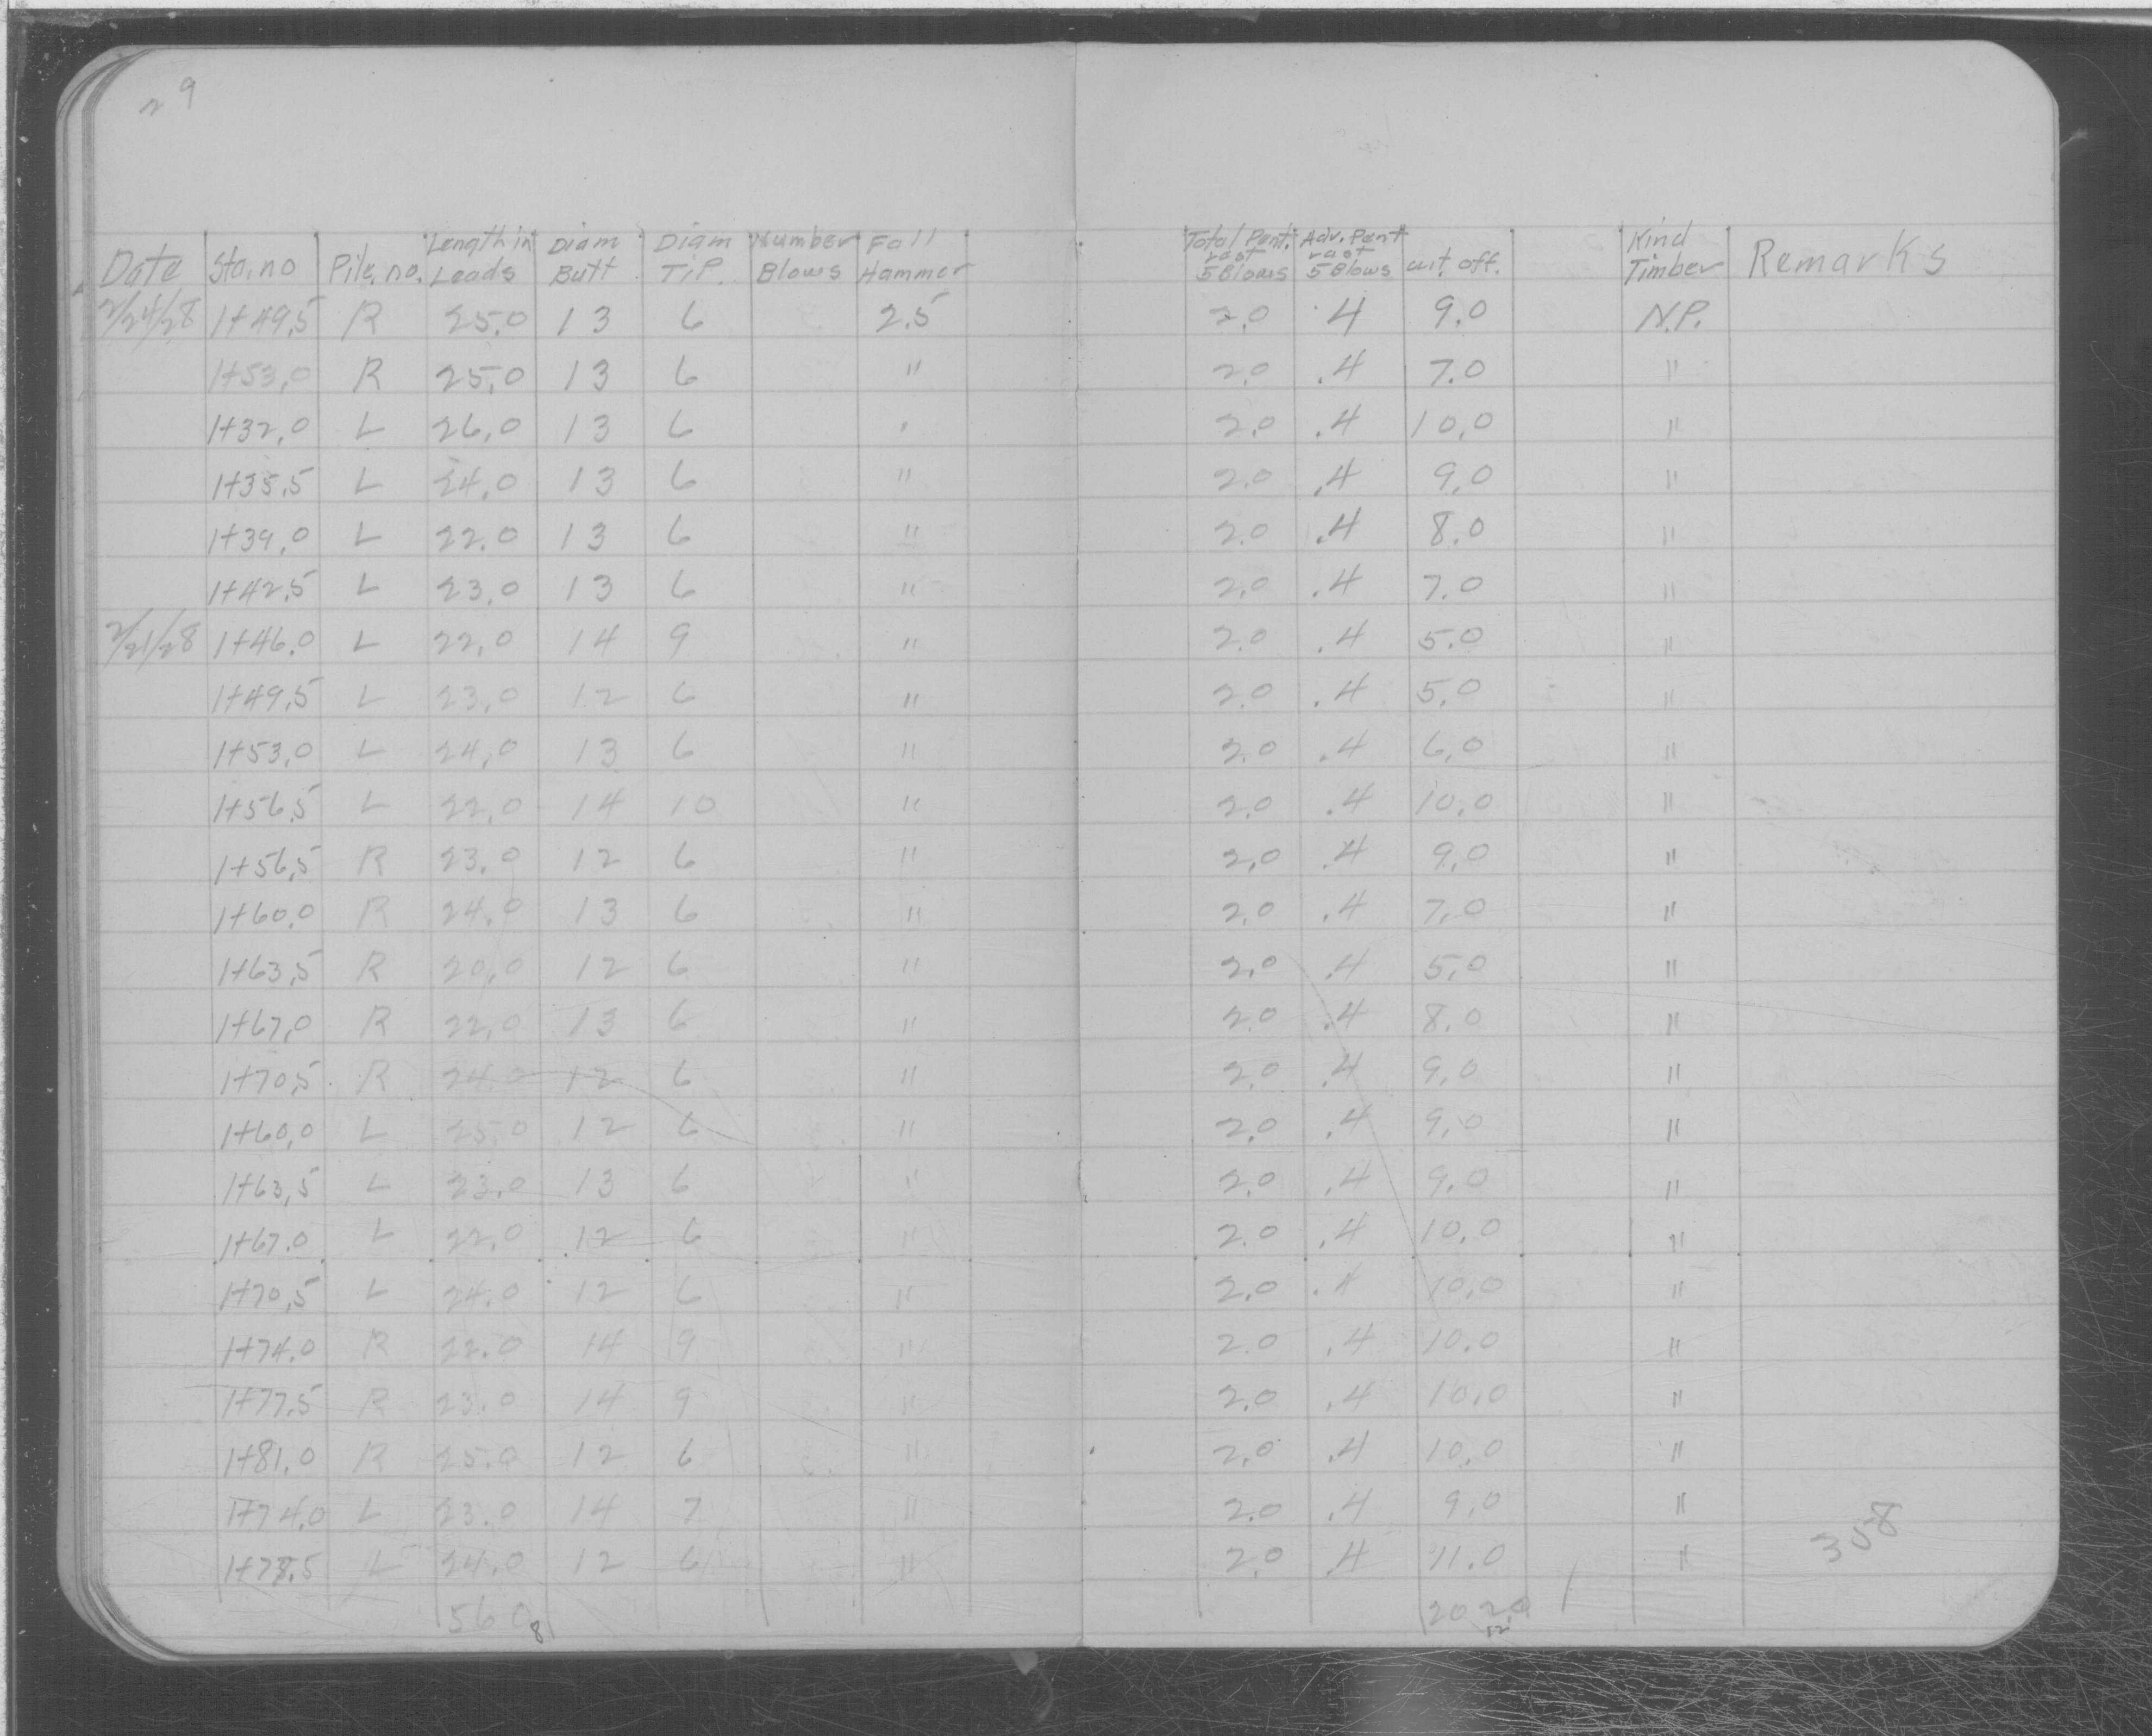 29
Date Sta. no Pile. no. Length in Leads Diam Butt Diam TiP. Number Blows Fall Hammer Total Pent. Last 5 Blows Adv. Pent Last 5 Blows cut off. Kind Timber Remarks
2/24/28 1+49.5 R 25.0 13 6 2.5 2.0 .4 9.0 N.P.
1+53.0 R 25.0 13 6 " 2.0 .4 7.0 "
1+32.0 L 26.0 13 6 " 2.0 .4 10.0 "
1+35.5 L 24.0 13 6 " 2.0 .4 9.0 "
1+39.0 L 22.0 13 6 " 2.0 .4 8.0 "
1+42.5 L 23.0 13 6 " 2.0 .4 7.0 "
2/21/28 1+46.0 L 22.0 14 9 " 2.0 .4 5.0 "
1+49.5 L 23.0 12 6 " 2.0 .4 5.0 "
1+53.0 L 24.0 13 6 " 2.0 .4 6.0 "
1+56.5 L 22.0 14 10 " 2.0 .4 10.0 "
1+56.5 R 23.0 12 6 " 2.0 .4 9.0 "
1+60.0 R 24.0 13 6 " 2.0 .4 7.0 "
1+63.5 R 20.0 12 6 " 2.0 .4 5.0 "
1+67.0 R 22.0 13 6 " 2.0 .4 8.0 "
1+70.5 R 24.0 12 6 " 2.0 .4 9.0 "
1+60.0 L 25.0 12 6 " 2.0 .4 9.0 "
1+63.5 L 23.0 13 6 " 2.0 .4 9.0 "
1+67.0 L 22.0 12 6 " 2.0 .4 10.0 "
1+70.5 L 24.0 12 6 " 2.0 .4 10.0 "
1+74.0 R 22.0 14 9 " 2.0 .4 10.0 "
1+77.5 R 23.0 14 9 " 2.0 .4 10.0 "
1+81.0 R 25.0 12 6 " 2.0 .4 10.0 "
1+74.0 L 23.0 14 7 " 2.0 .4 9.0 "
1+78.5 L 24.0 12 6 " 2.0 .4 11.0 "
358
560 8 202.0